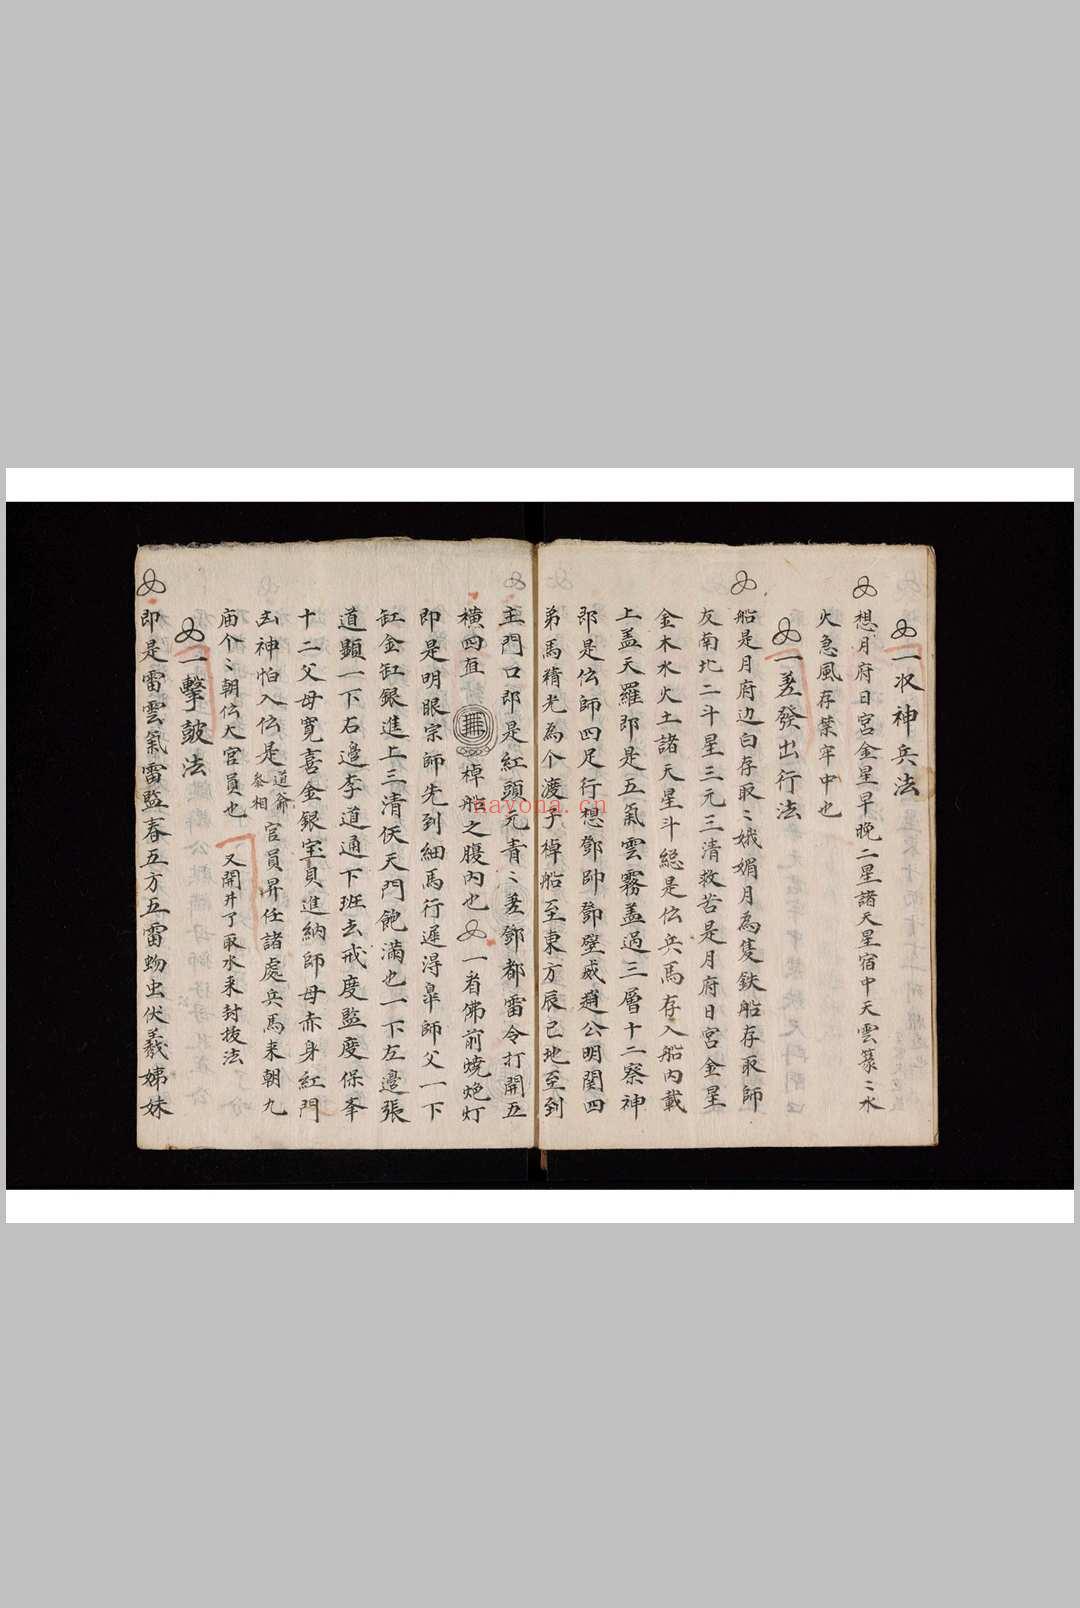 一収神兵法
想月府日宮金星早晚二星諸天星宿中天雲篆〻水
火急風存葉牢中也
一差發出行法
船是月府边白存取〻娥媚月為隻鉄船存取師
友南北二斗星三元三清救苦是月府日宮金星
金木水火土諸天星斗總是伝兵馬存入船內載
上盖天羅即是五氣雲霧盖過三層十二寮神
即是伝師四足行想鄧帥鄧壁威趙公明関四
弟馬精光為个渡子棹船至東方辰巳地至到
主門口即是紅頭元青〻差鄧都雷令打開五
橫四直 棹船之腹內也 一者佛前燒炮灯
即是明眼宗師先到細馬行遲淂皐師父一下
缸金缸銀進上三清伬天門飽滿也一下左邉張
道顕一下右邉李道通下班去戒度監度保峯
十二父母寛喜金銀宝貝進納師母赤身紅門
玄神怕入伝是道爺叅相官員昇任諸處兵馬来朝九
庙个〻朝伝大官員也 又開井了取水来封拔法
一擊皷法
即是雷雲氣雷監春五方五雷蚴虫伏羲姊妹
nayona.cn